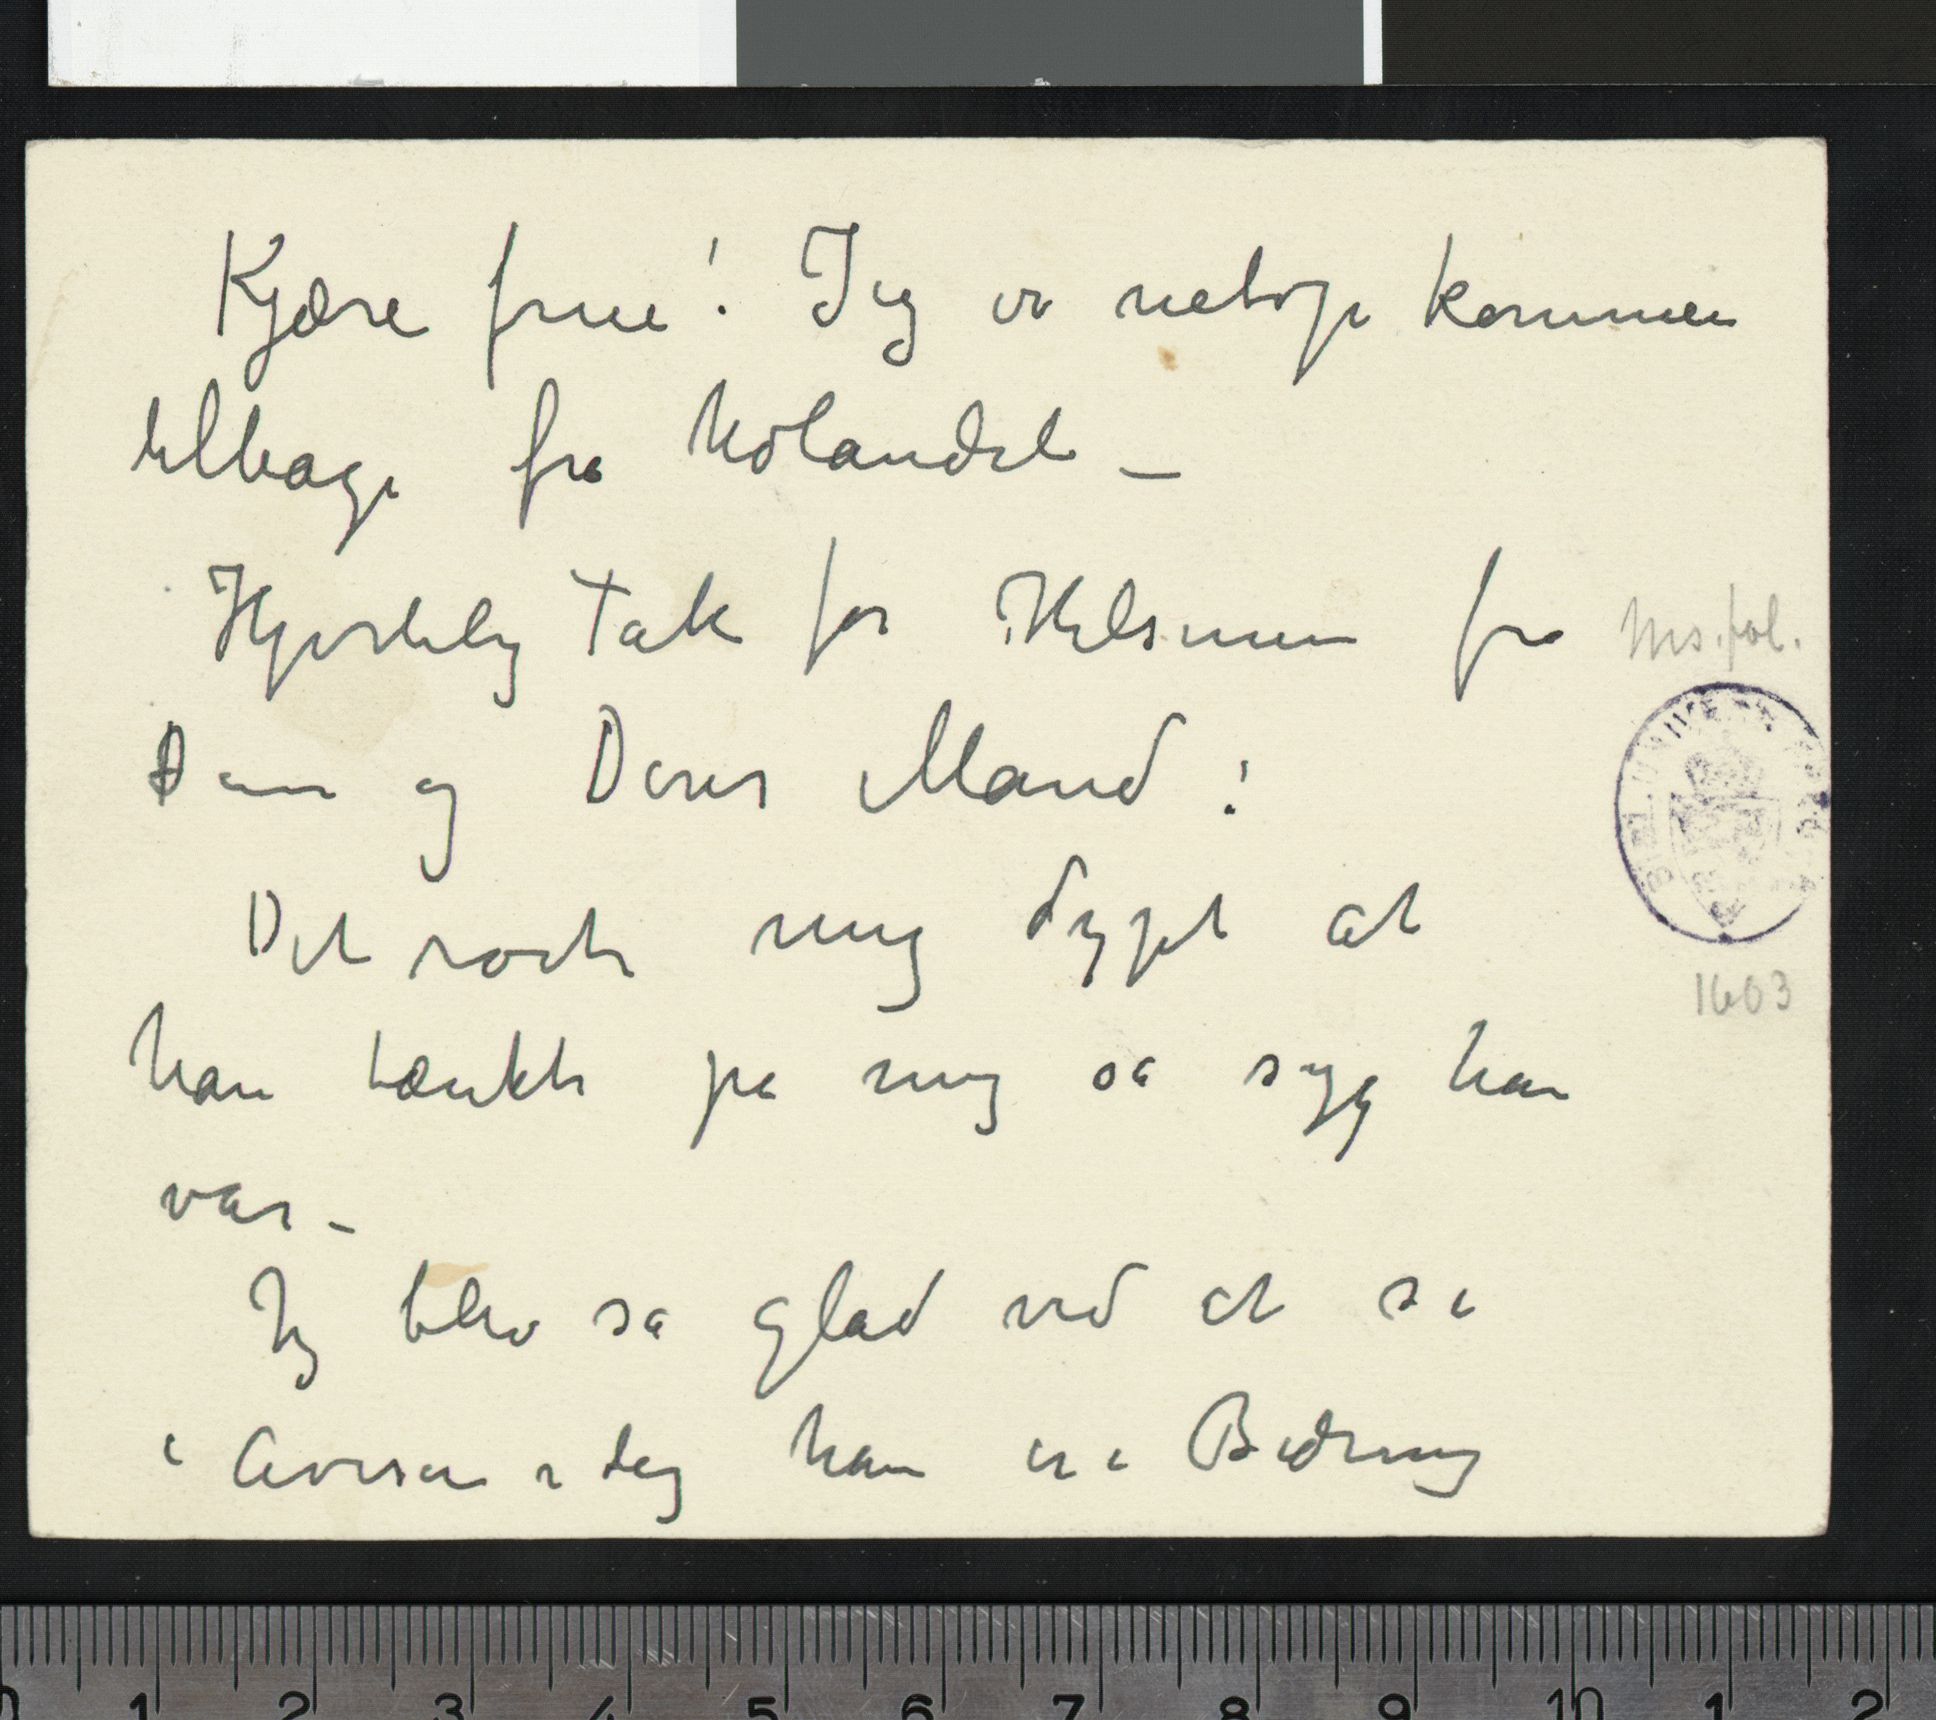 Kjære frue! Jeg er netop kommen
tilbage fra Udlandet –
Hjertelig Tak for Hilsenen fra
Dem og Deres Mand!
Det rørte mig dypt at
han tænkte på mig så syg han
var –
Jeg blev så glad ved at se
i Avisen i dag han er i Bedring
Ms. fol.
1603